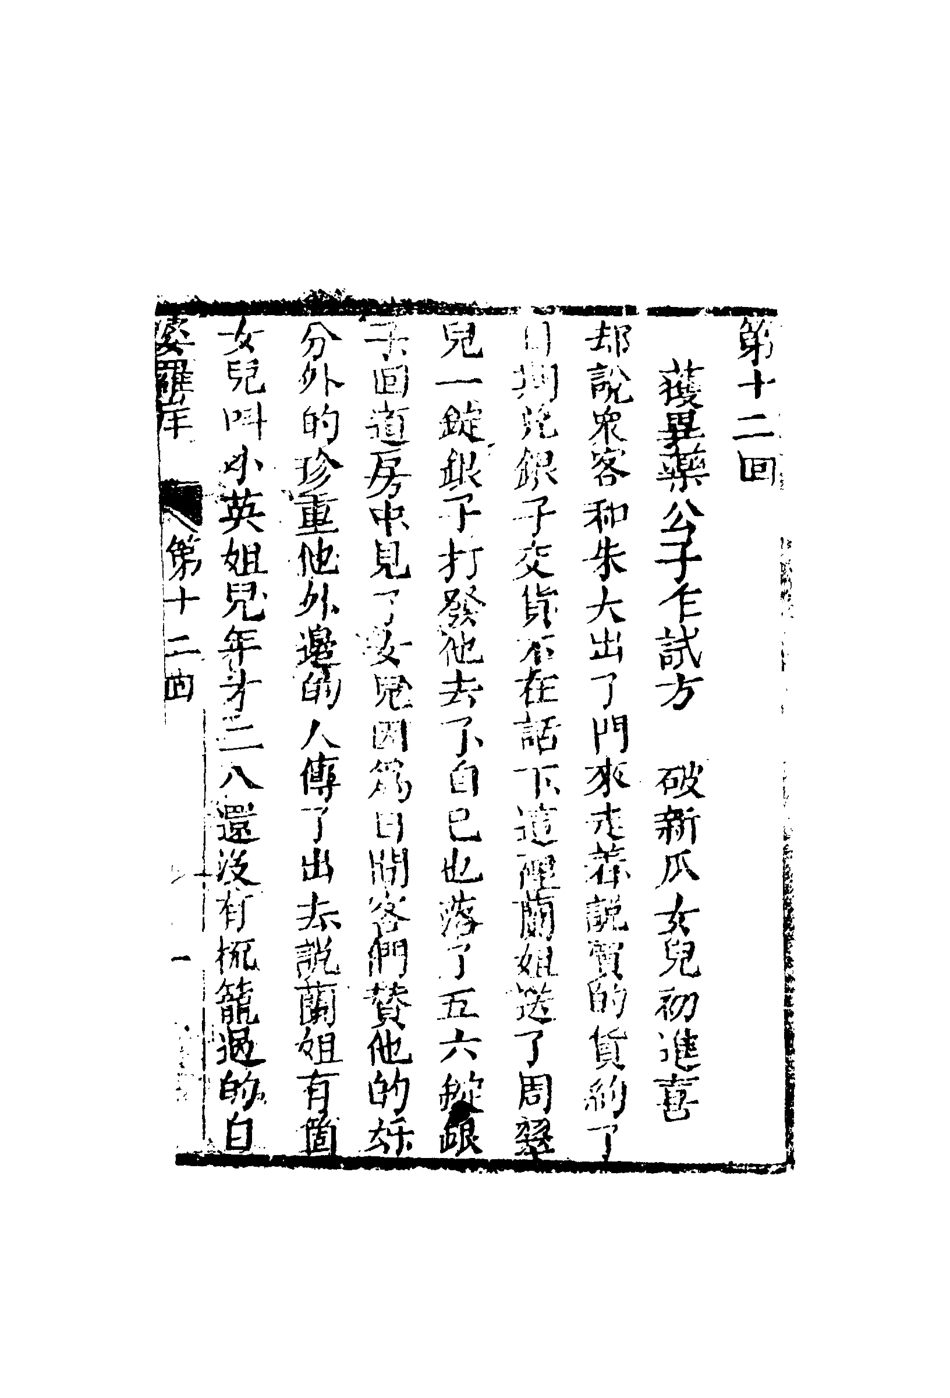 第十二回
獲異藥公子乍試方　破新瓜女兒初進喜
却說衆客和朱大出了門來走着說買的貨約了
日期兌銀子交貨不在話下這裡蘭姐送了周翠
兒一錠銀子打發他去了自己也落了五六錠銀
子回道房中見了女兒因爲日間客們贊他的好
分外的珍重他外邊的人傳了出去說蘭姐有箇
女兒叫小英姐兒年才二八還沒有梳籠過的白
婆羅岸　第十二回　一